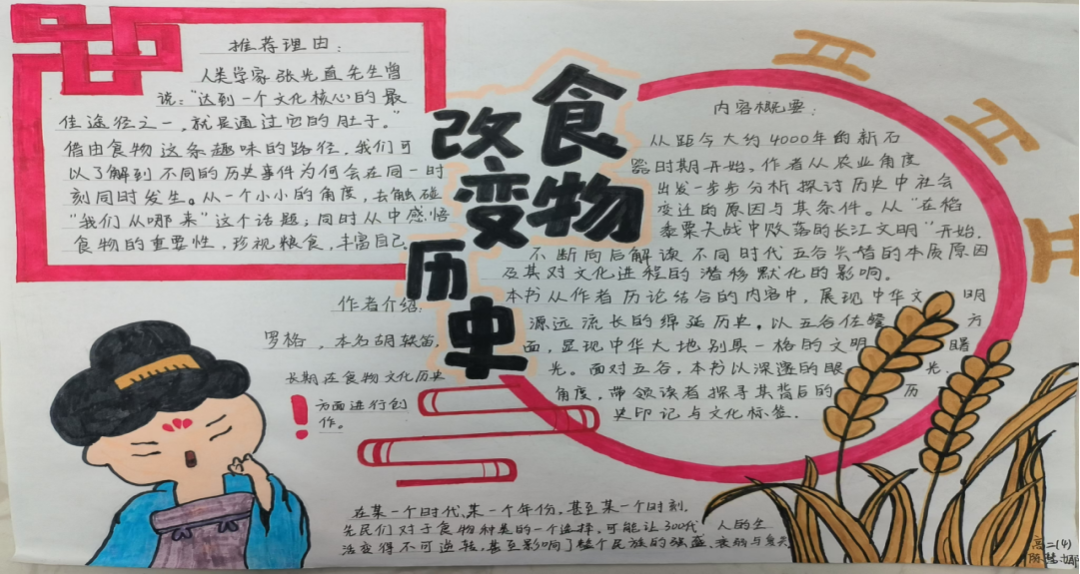 食物
改变
历史
推荐理由：
人类学家张光直先生曾
说："达到一个文化核心的最
佳途径之一，就是通过它的肚子。"
借由食物这条趣味的路径，我们可
以了解到不同的历史事件为何会在同一时
刻同时发生。从一个小小的角度，去触碰
"我们从哪来"这个话题；同时从中感悟
食物的重要性，珍视粮食，丰富自己。
作者介绍：
罗格，本名胡轶笛，
长期在食物文化历史
方面进行创
作。
内容概要：
从距今大约4000年的新石
器时期开始，作者从农业角度
出发一步步分析探讨历史中社会
变迁的原因与其条件。从"在稻
黍粟大战中败落的长江文明"开始，
不断向后解读不同时代五谷类替的本质原因
及其对文化进程的潜移默化的影响。
本书从作者历论结合的内容中，展现中华文明
源远流长的绵延历史。以五谷佐餐方
面，显现中华大地别具一格的文明曙
光。面对五谷，本书以深邃的眼光，
角度，带领读者探寻其背后的历
史印记与文化标签。
在某一个时代，某一个年份，甚至某一个时刻，
先民们对于食物种类的一个选择，可能让300代人的生
活变得不可逆转，甚至影响了整个民族的强盛、衰弱与
高二(4)